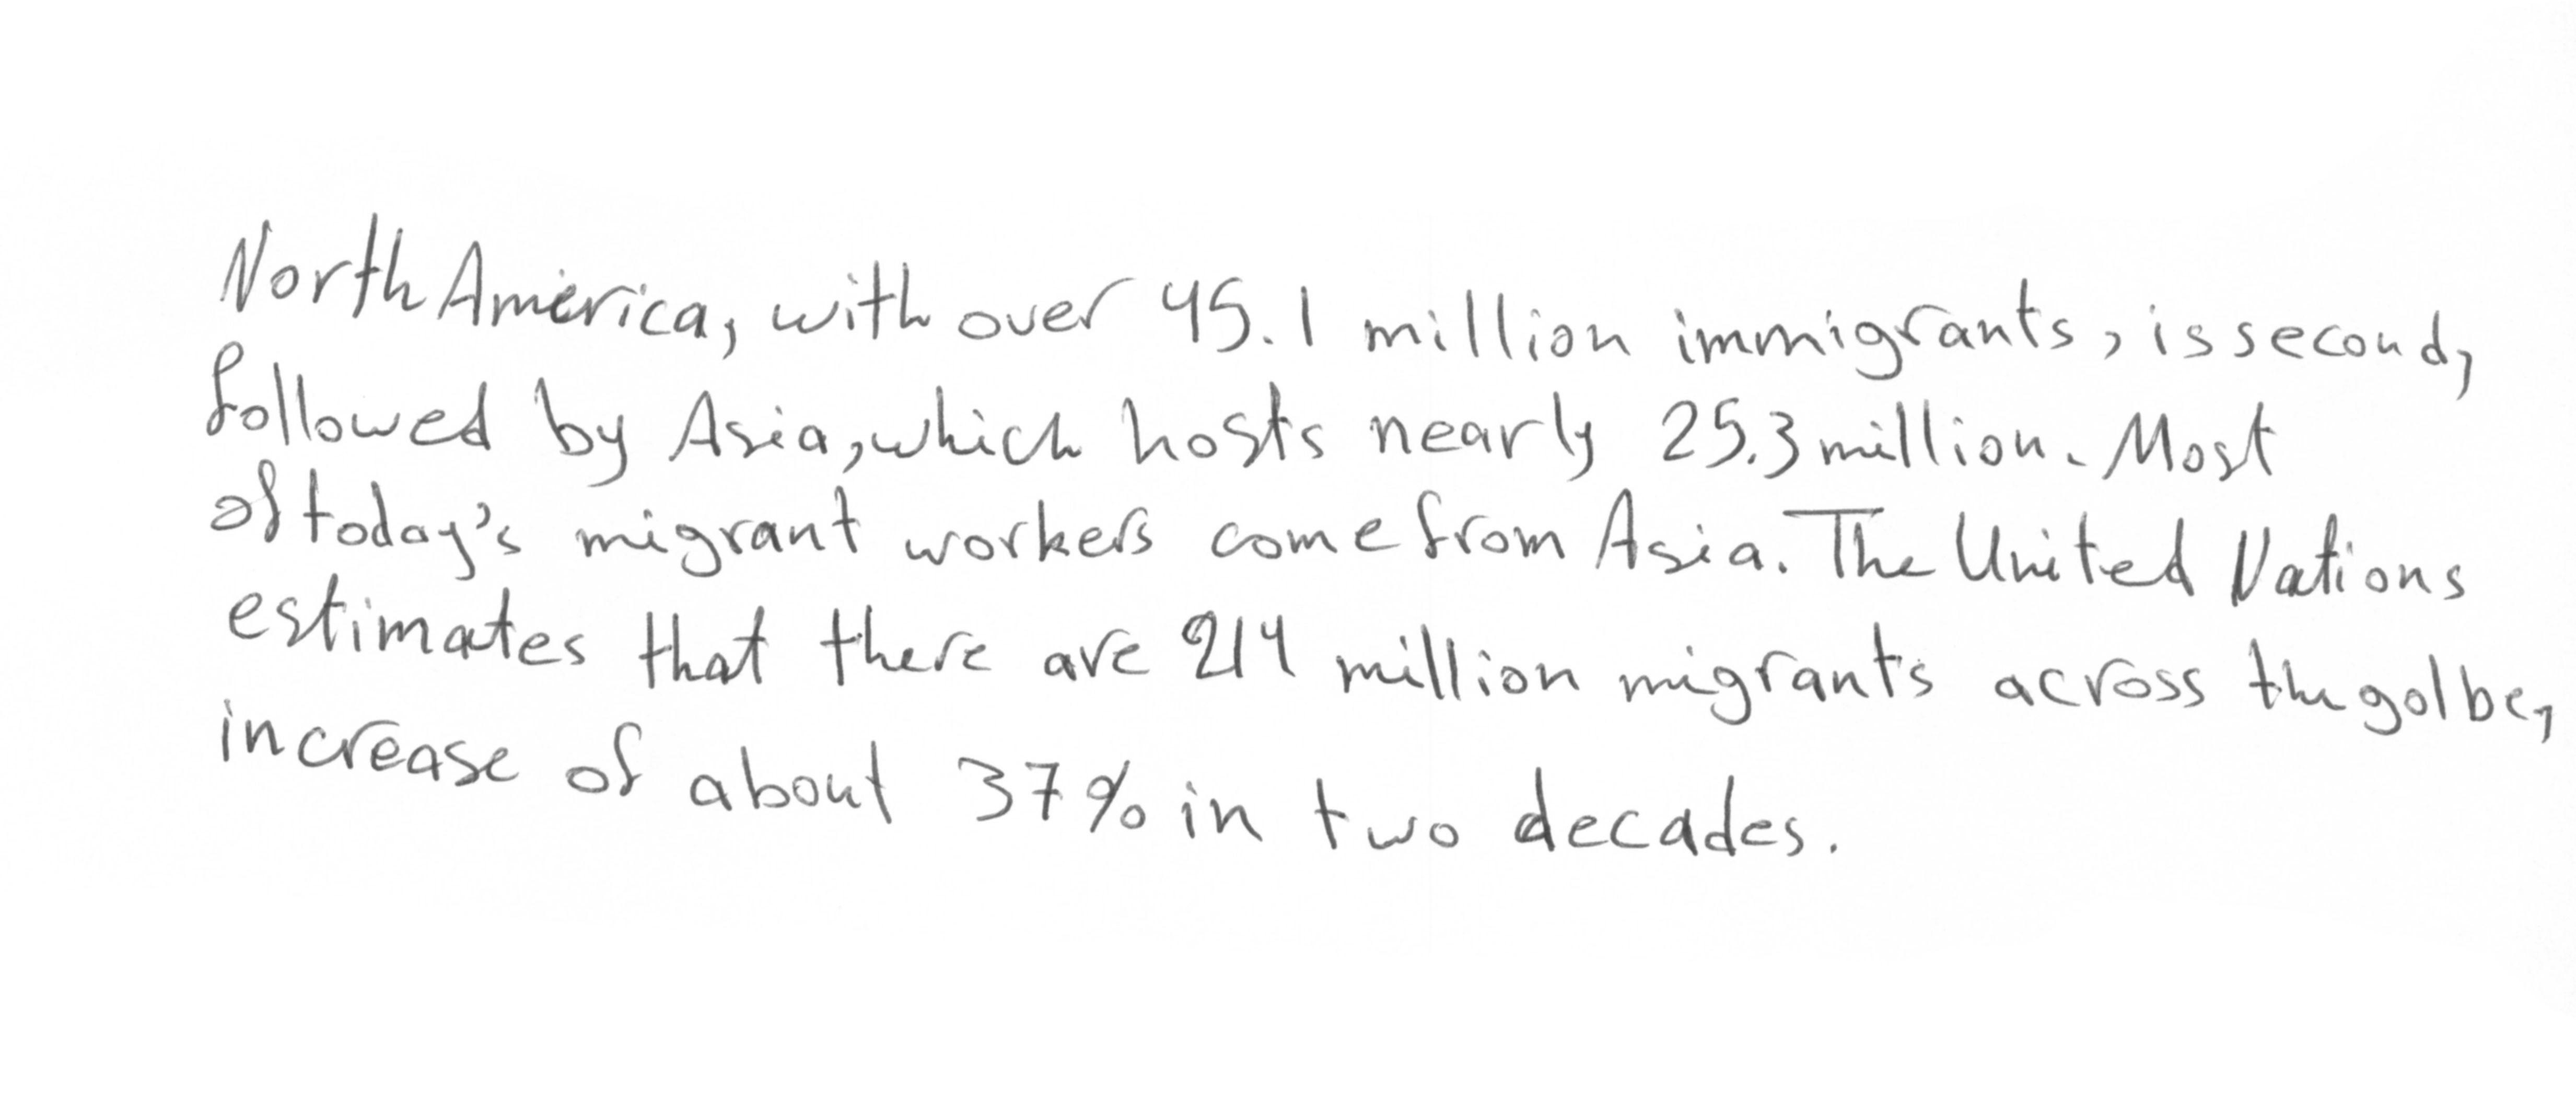 North America, with over 45.1 million immigrants, is second,
followed by Asia, which hosts nearly 25.3 million. Most
of today's migrant workers come from Asia. The United Nations
estimates that there are 214 million migrants across the golbe,
increase of about 37% in two decades.